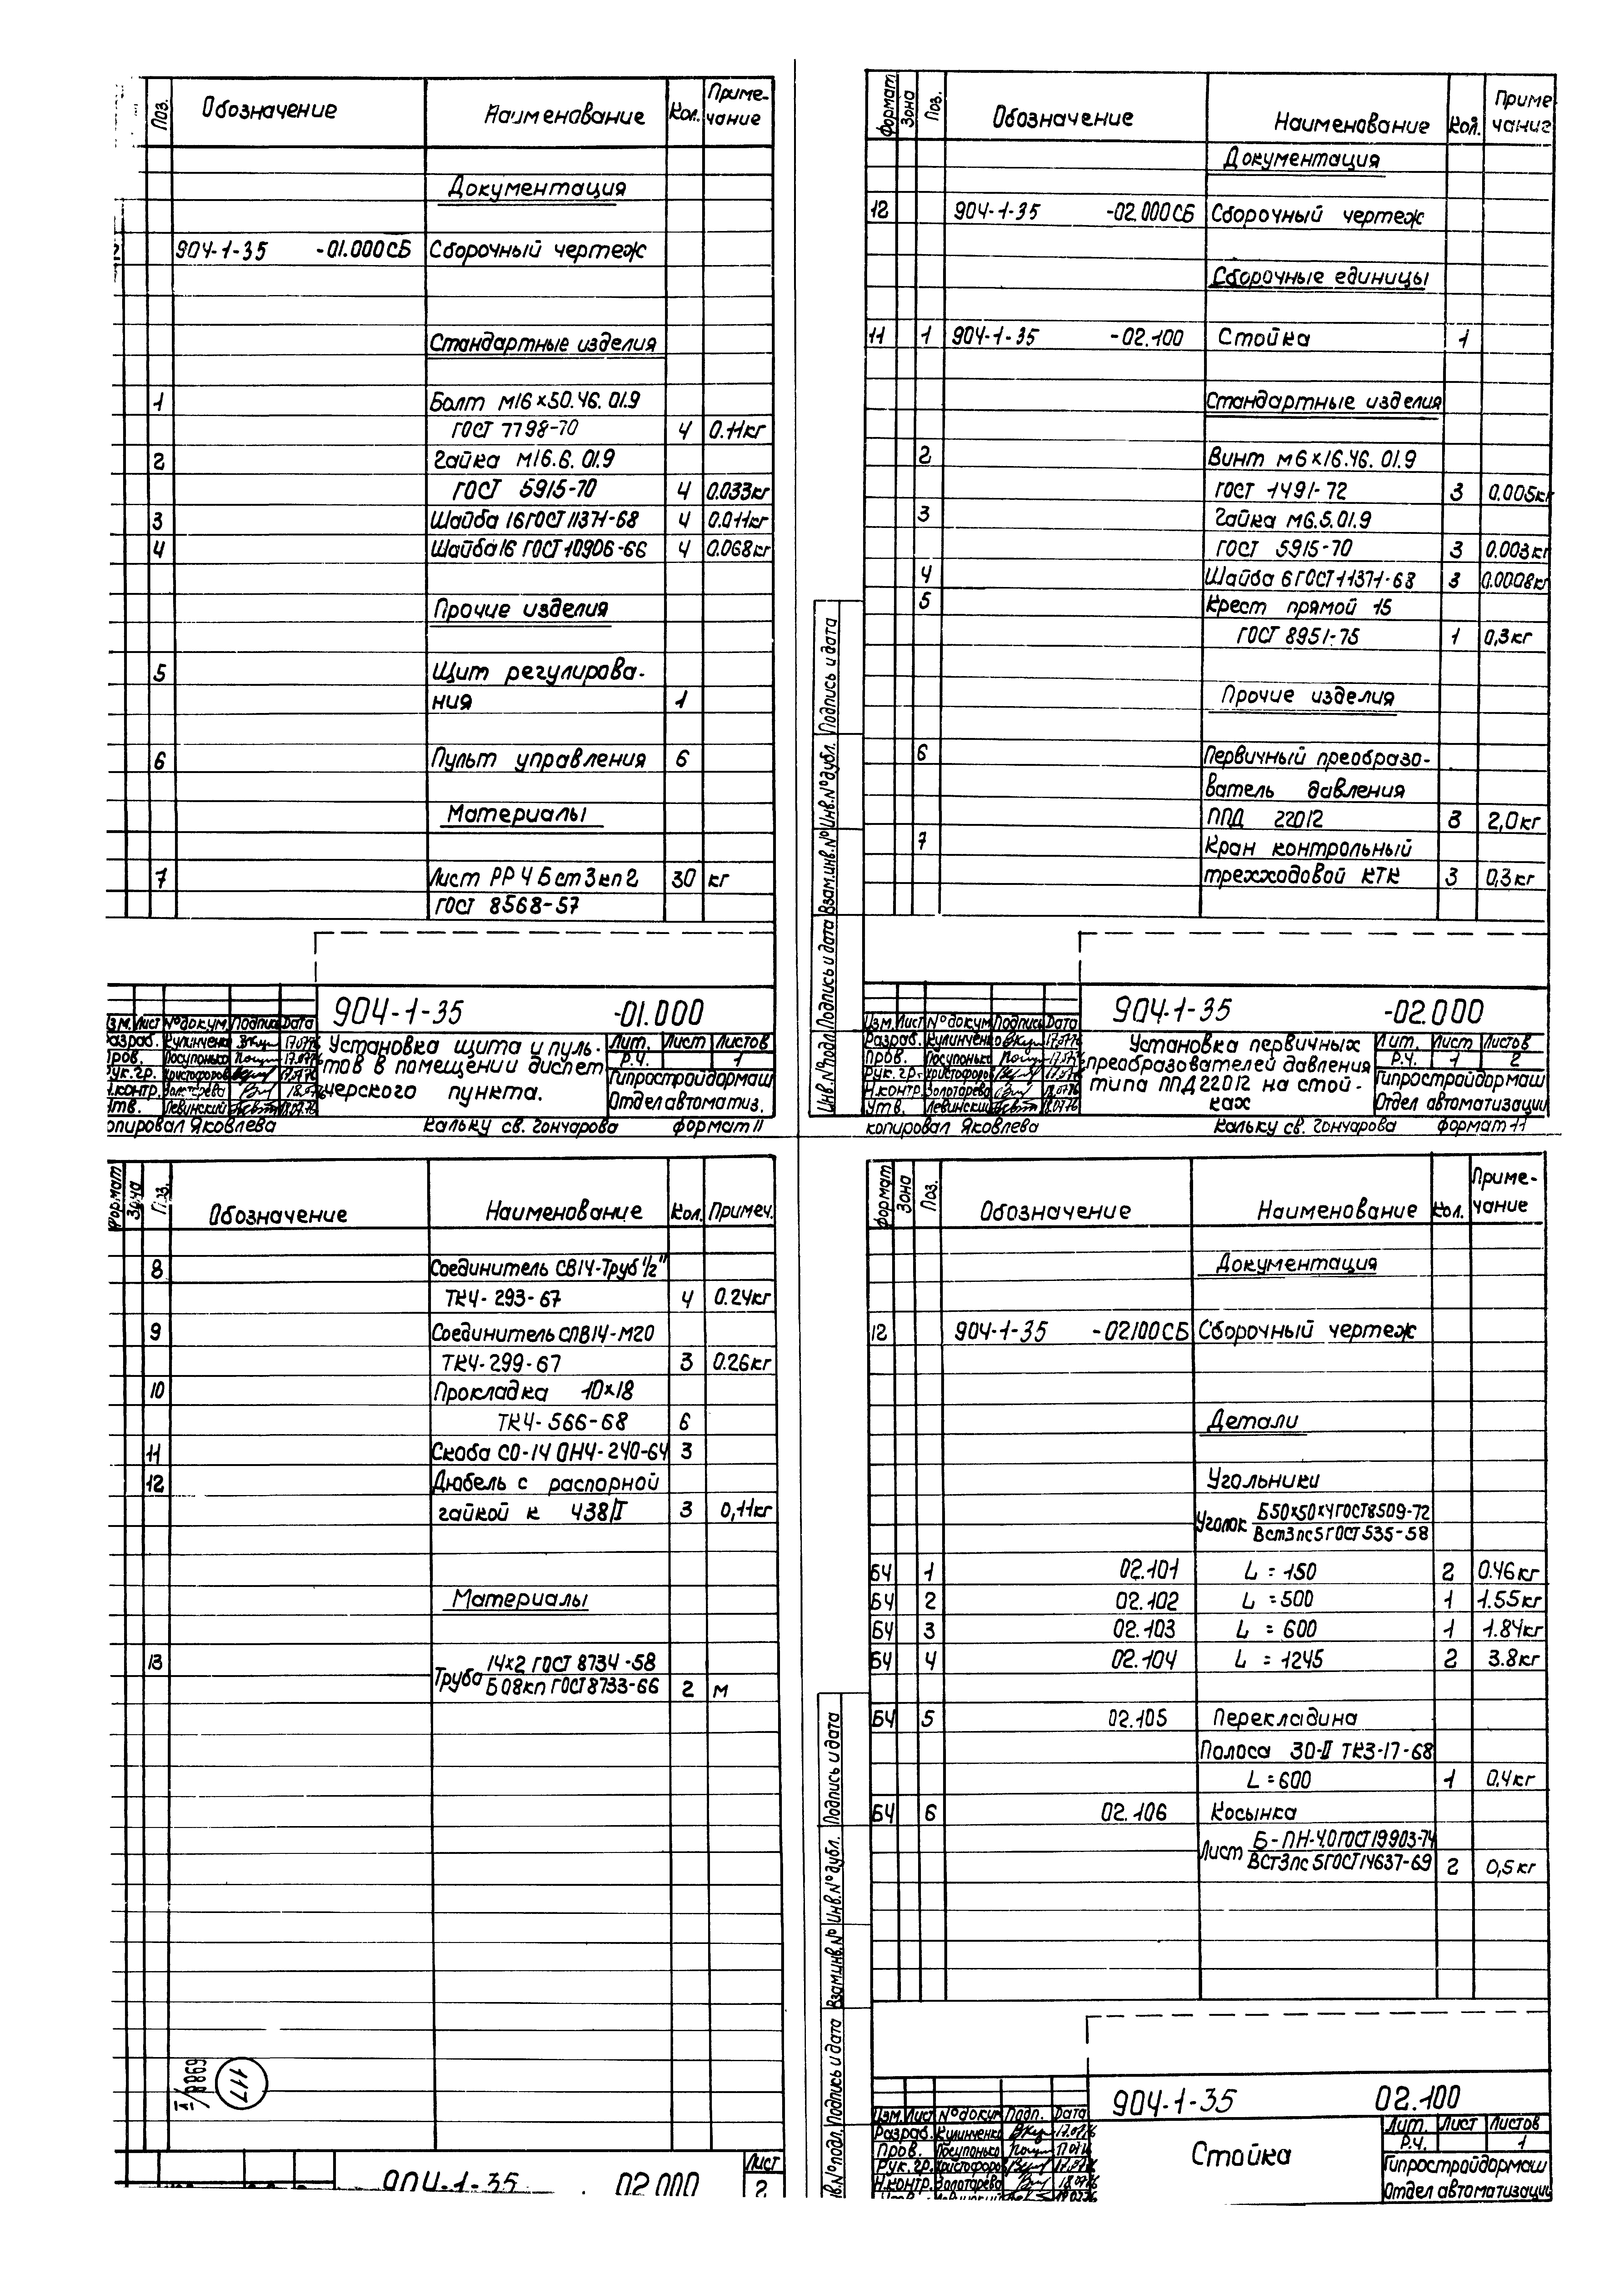 Поз. Обозначение Наименование Кол. Приме-чание
Документация
904-1-35 -01.000СБ Сборочный чертеж
Стандартные изделия
1 Болт М16×50.46.01.9
ГОСТ 7798-70 4 0.11кг
2 Гайка М16.6.01.9
ГОСТ 5915-70 4 0.033кг
3 Шайба 16 ГОСТ 11371-68 4 0.011кг
4 Шайба 16 ГОСТ 10906-66 4 0.068кг
Прочие изделия
5 Щит регулирова-
ния 1
6 Пульт управления 6
Материалы
7 Лист РР 4 Б ст 3 кп 2 30 кг
ГОСТ 8568-57
904-1-35 -01.000
Изм. Лист № докум. Подпись Дата
Разраб. Кулинченко 17.07.76
Пров. Посупонько 17.07.76
Рук. гр. Христофоров 17.07.76
Н.контр. Золотарева 18.07.76
Утв. Левинский 18.07.76
Установка щита и пуль-
тов в помещении диспет-
черского пункта.
Лит. Лист Листов
Р.Ч. 1
Гипростройдормаш
Отдел автоматиз.
копировал Яковлева Кальку св. Гончарова формат 11
Формат Зона Поз. Обозначение Наименование Кол. Приме-чание
Документация
12 904-1-35 -02.000СБ Сборочный чертеж
Сборочные единицы
11 1 904-1-35 -02.100 Стойка 1
Стандартные изделия
2 Винт М6×16.46.01.9
ГОСТ 1491-72 3 0.005кг
3 Гайка М6.5.01.9
ГОСТ 5915-70 3 0.003кг
4 Шайба 6 ГОСТ 11371-68 3 0.0008кг
5 Крест прямой 15
ГОСТ 8951-75 1 0,3кг
Прочие изделия
6 Первичный преобразо-
ватель давления
ППД 22012 3 2,0кг
7 Кран контрольный
трехходовой КТК 3 0,3кг
Инв.№ подл. Подпись и дата Взам.инв.№ Инв.№ дубл. Подпись и дата
904-1-35 -02.000
Изм. Лист № докум Подпись Дата
Разраб. Кулинченко 17.07.76
Пров. Посупонько 17.07.76
Рук. гр. Христофоров 17.07.76
Н.контр Золотарева 18.07.76
Утв. Левинский 18.07.76
Установка первичных
преобразователей давления
типа ППД 22012 на стой-
ках
Лит. Лист Листов
Р.Ч. 1 2
Гипростройдормаш
Отдел автоматизации
копировал Яковлева Кальку св. Гончарова формат 11
Формат Зона Поз. Обозначение Наименование Кол. Примеч.
8 Соединитель СВ14-Труб 1/2"
ТК4-293-67 4 0.24кг
9 Соединитель СПВ14-М20
ТК4-299-67 3 0.26кг
10 Прокладка 10×18
ТК4-566-68 6
11 Скоба СО-14 ОН4-240-64 3
12 Дюбель с распорной
гайкой к 438/I 3 0,11кг
Материалы
13 Труба 14×2 ГОСТ 8734-58
Б 08кп ГОСТ 8733-66 2 м
117
904-1-35 02.000
Лист
2
Формат Зона Поз. Обозначение Наименование Кол. Приме-чание
Документация
12 904-1-35 -02100СБ Сборочный чертеж
Детали
Угольники
Уголок Б50×50×4 ГОСТ 8509-72
Вст3пс5 ГОСТ 535-58
БЧ 1 02.101 L = 150 2 0.46кг
БЧ 2 02.102 L = 500 1 1.55кг
БЧ 3 02.103 L = 600 1 1.84кг
БЧ 4 02.104 L = 1245 2 3.8кг
БЧ 5 02.105 Перекладина
Полоса 30-II ТК3-17-68
L = 600 1 0,4кг
БЧ 6 02.106 Косынка
Лист Б-ПН-4.0 ГОСТ 19903-74
ВСТ3пс 5 ГОСТ 14637-69 2 0,5кг
в.№ подл. Подпись и дата Взам.инв.№ Инв.№ дубл. Подпись и дата
904-1-35 02.100
Изм. Лист № докум Подп. Дата
Разраб. Кулинченко 17.07.76
Пров. Посупонько 17.07.76
Рук. гр. Христофоров 17.07.76
Н.контр. Золотарева 18.07.76
Стойка
Лит. Лист Листов
Р.Ч. 1
Гипростройдормаш
Отдел автоматизации